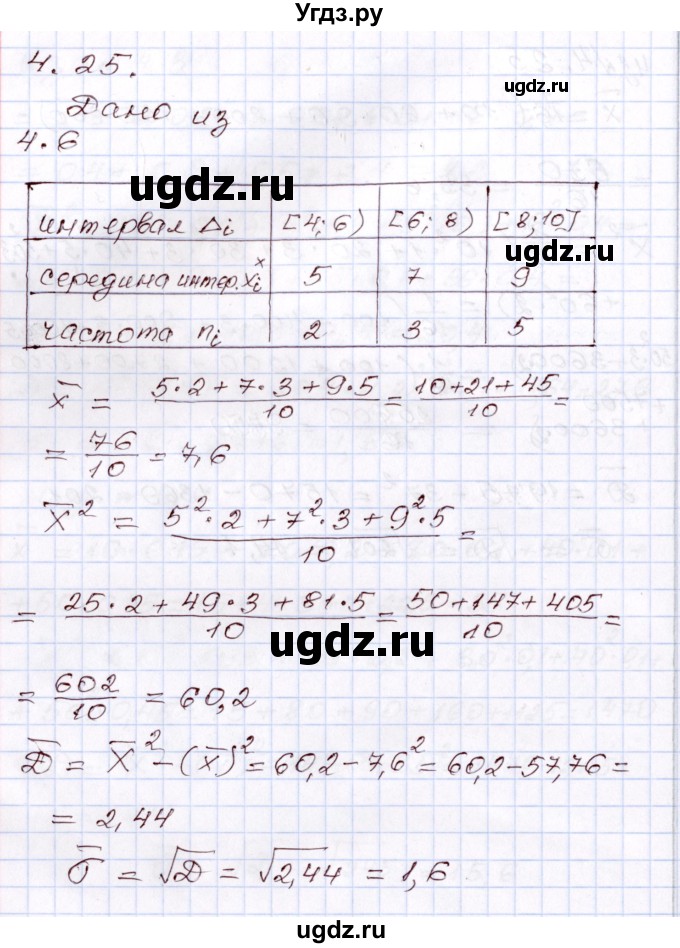 Угдз.ру
4. 25.
ugdz.ru
Дано из
4.6
ugdz.ru
интервал Δi [4; 6) [6; 8) [8; 10]
ugdz.ru
середина интер. xᵢˣ 5 7 9
частота ni 2 3 5
x̄ = (5·2+7·3+9·5)/10 = (10+21+45)/10 =
= 76/10 = 7,6
X̄² = (5²·2+7²·3+9²·5)/10 =
= (25·2+49·3+81·5)/10 = (50+147+405)/10 =
ugdz.ru
= 602/10 = 60,2
D̄ = X̄² - (x̄)² = 60,2-7,6² = 60,2-57,76 =
= 2,44
σ̄ = √D̄ = √2,44 = 1,6
ugdz.ru
ugdz.ru